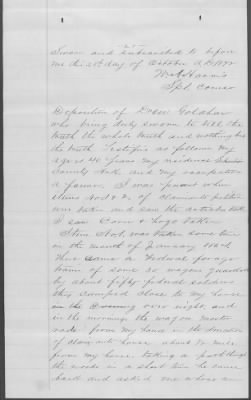 Sworn and subscribed to before
me this day of October A.D. 1872
Wm H Harris
Spl. Comr
Deposition of Drew
who being duly sworn to tell the
truth the whole truth and nothing but
the truth Testifies as follows My
age is 40 years my residence
County Ark. and my occupation
a farmer. I was present when
items No 1 & 2 of claimants petition
was taken and saw the articles taken
I saw Corn & hogs taken
Item No 1, was taken some time
in the month of January 1864
There came a Federal forage
train of some 20 wagons guarded
by about fifty federal soldiers
they camped close to my house
over night, and
in the morning the wagon master
rode from my house in the direction
of claimants house about ½ mile
from my house, taking a path through
the woods in a short time he came
back and asked me where